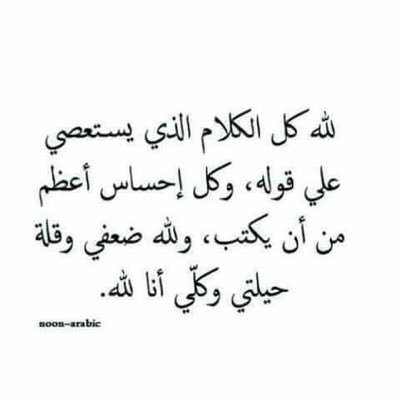 لله كل الكلام الذي يستعصي
علي قوله، وكل إحساس أعظم
من أن يكتب، ولله ضعفي وقلة
حيلتي وكلّي أنا لله.
noon-arabic